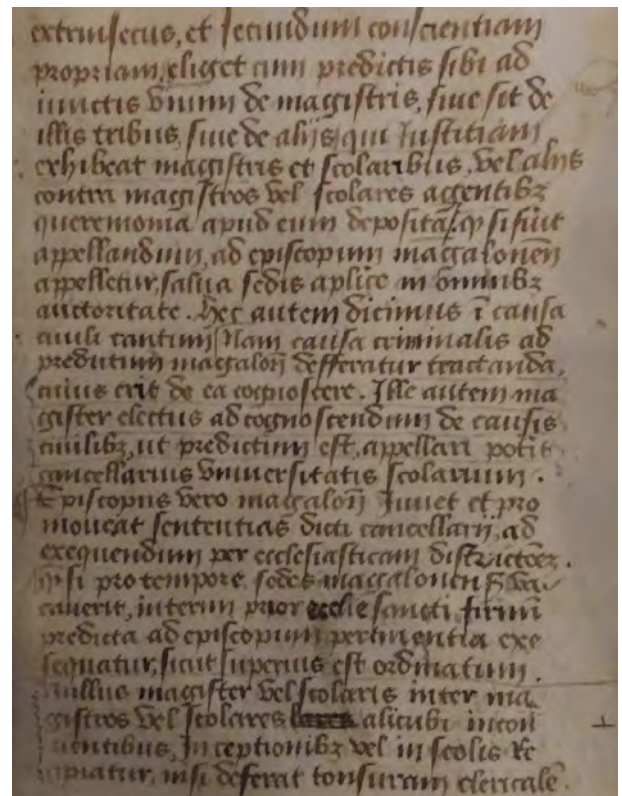 extrinsecus, et secundum conscientiam
propriam, eliget cum predictis sibi ad
iunctis vnum de magistris, siue sit de
illis tribus, siue de alijs, qui Iustitiam
exhibeat magistris et scolaribus, vel alijs
contra magistros vel scolares agentibz
queremonia apud eum deposita, qͫ si fuit
appellandum, ad episcopum magalonen̄
appelletur, salua sedis aplice in omnibz
auctoritate. Hec autem dicimus ī causa
ciuili tantum, Nam causa criminalis ad
predictum magalon̄ defferatur tractanda,
cuius erit de ea cognoscere. Ille autem ma
gister electus ad cognoscendum de causis
ciuilibz, ut predictum est, appellari potit
cancellarius vniuersitatis scolarium.
Episcopus vero magalon̄ Iuuet et pro
moueat sententias dicti cancellarij, ad
exequendum per ecclesiasticam
si pro tempore sedes magalonen̄
cauerit, interim prior ecclie sancti firmi
predicta ad episcopum pertinentia exe
sequatur, sicut superius est ordinatum.
Nullus magister vel scolaris inter ma
gistros vel scolares alicubi in con
uentibus, In ceptionibz vel in scolis Re
cipiatur, nisi deferat tonsuram clericalē.